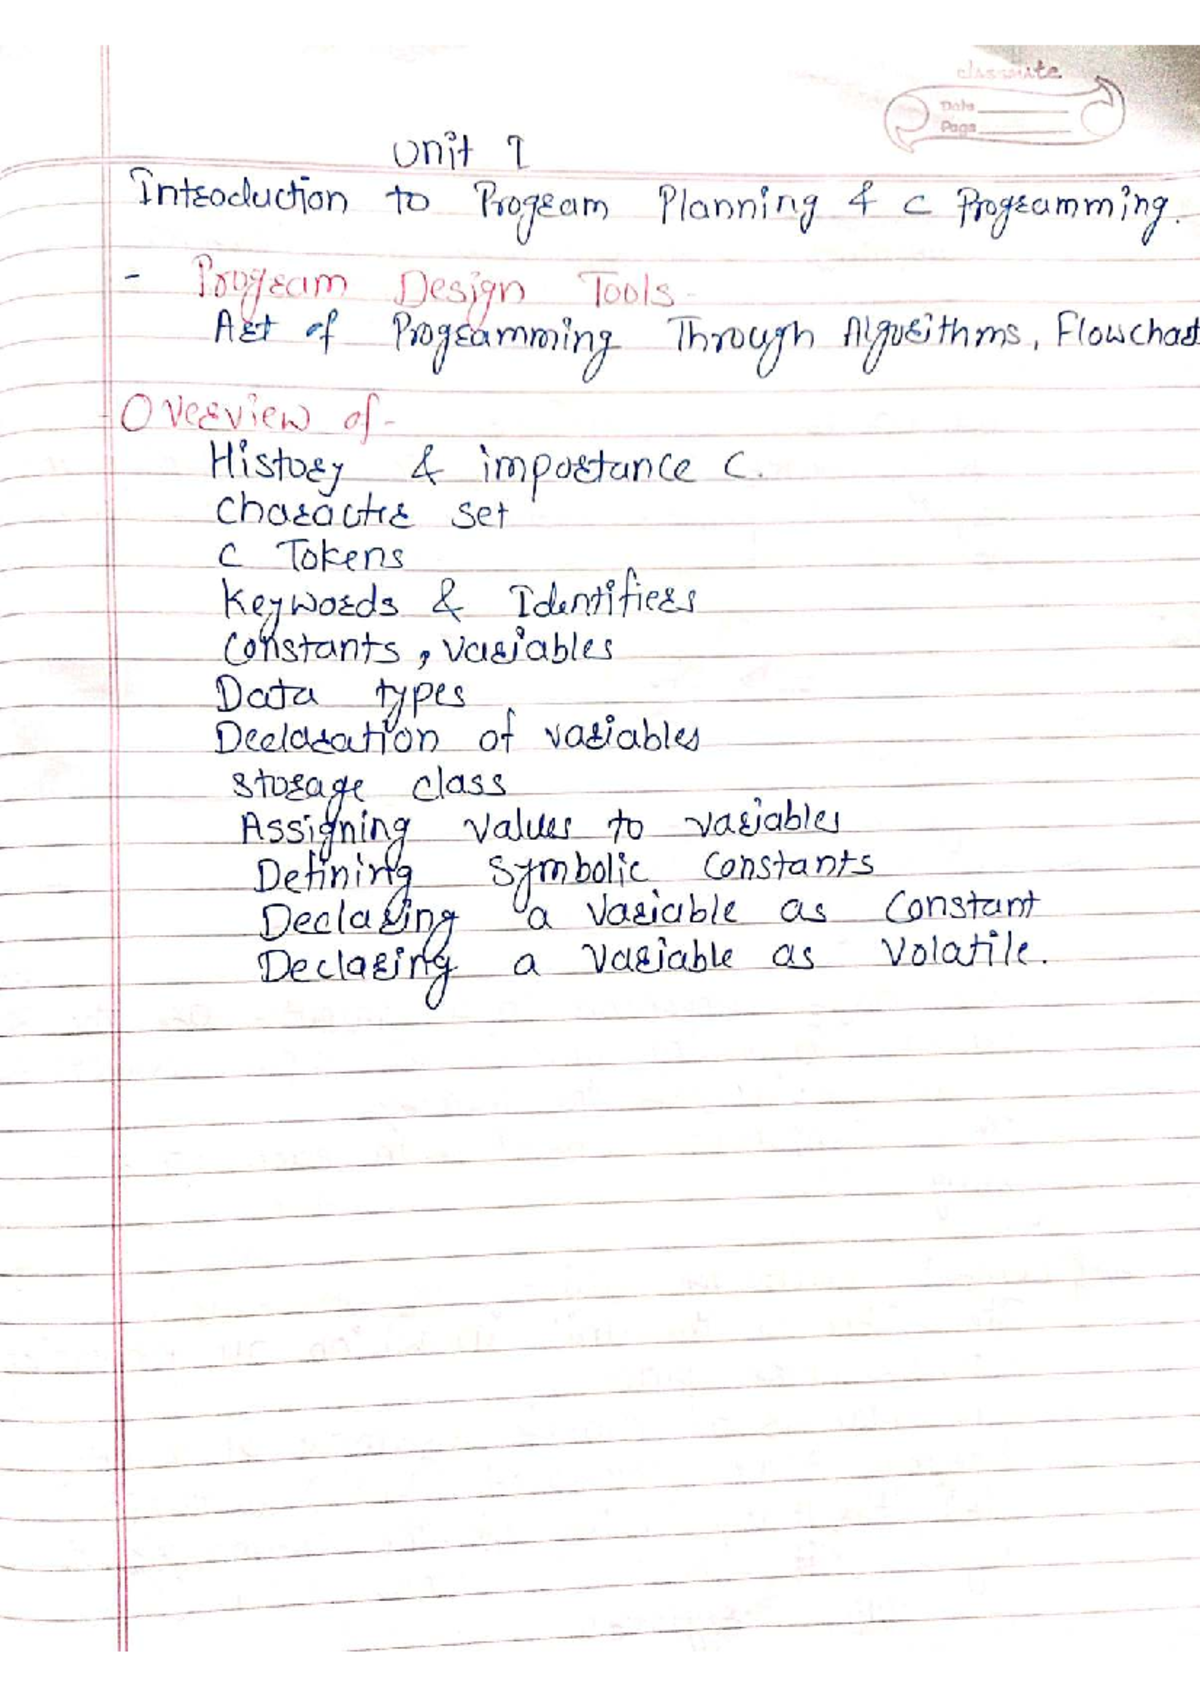 classmate
Date
Page
Unit 1
Introduction to Program Planning & C Programming.
- Program Design Tools-
Art of Programming Through Algorithms, Flowchart
Overview of-
History & importance C.
Charactre set
C Tokens
Keywords & Identifiers
Constants, variables
Data types
Declaration of variables
storage class
Assigning values to variables
Defining Symbolic Constants
Declaring a Variable as Constant
Declaring a Variable as Volatile.